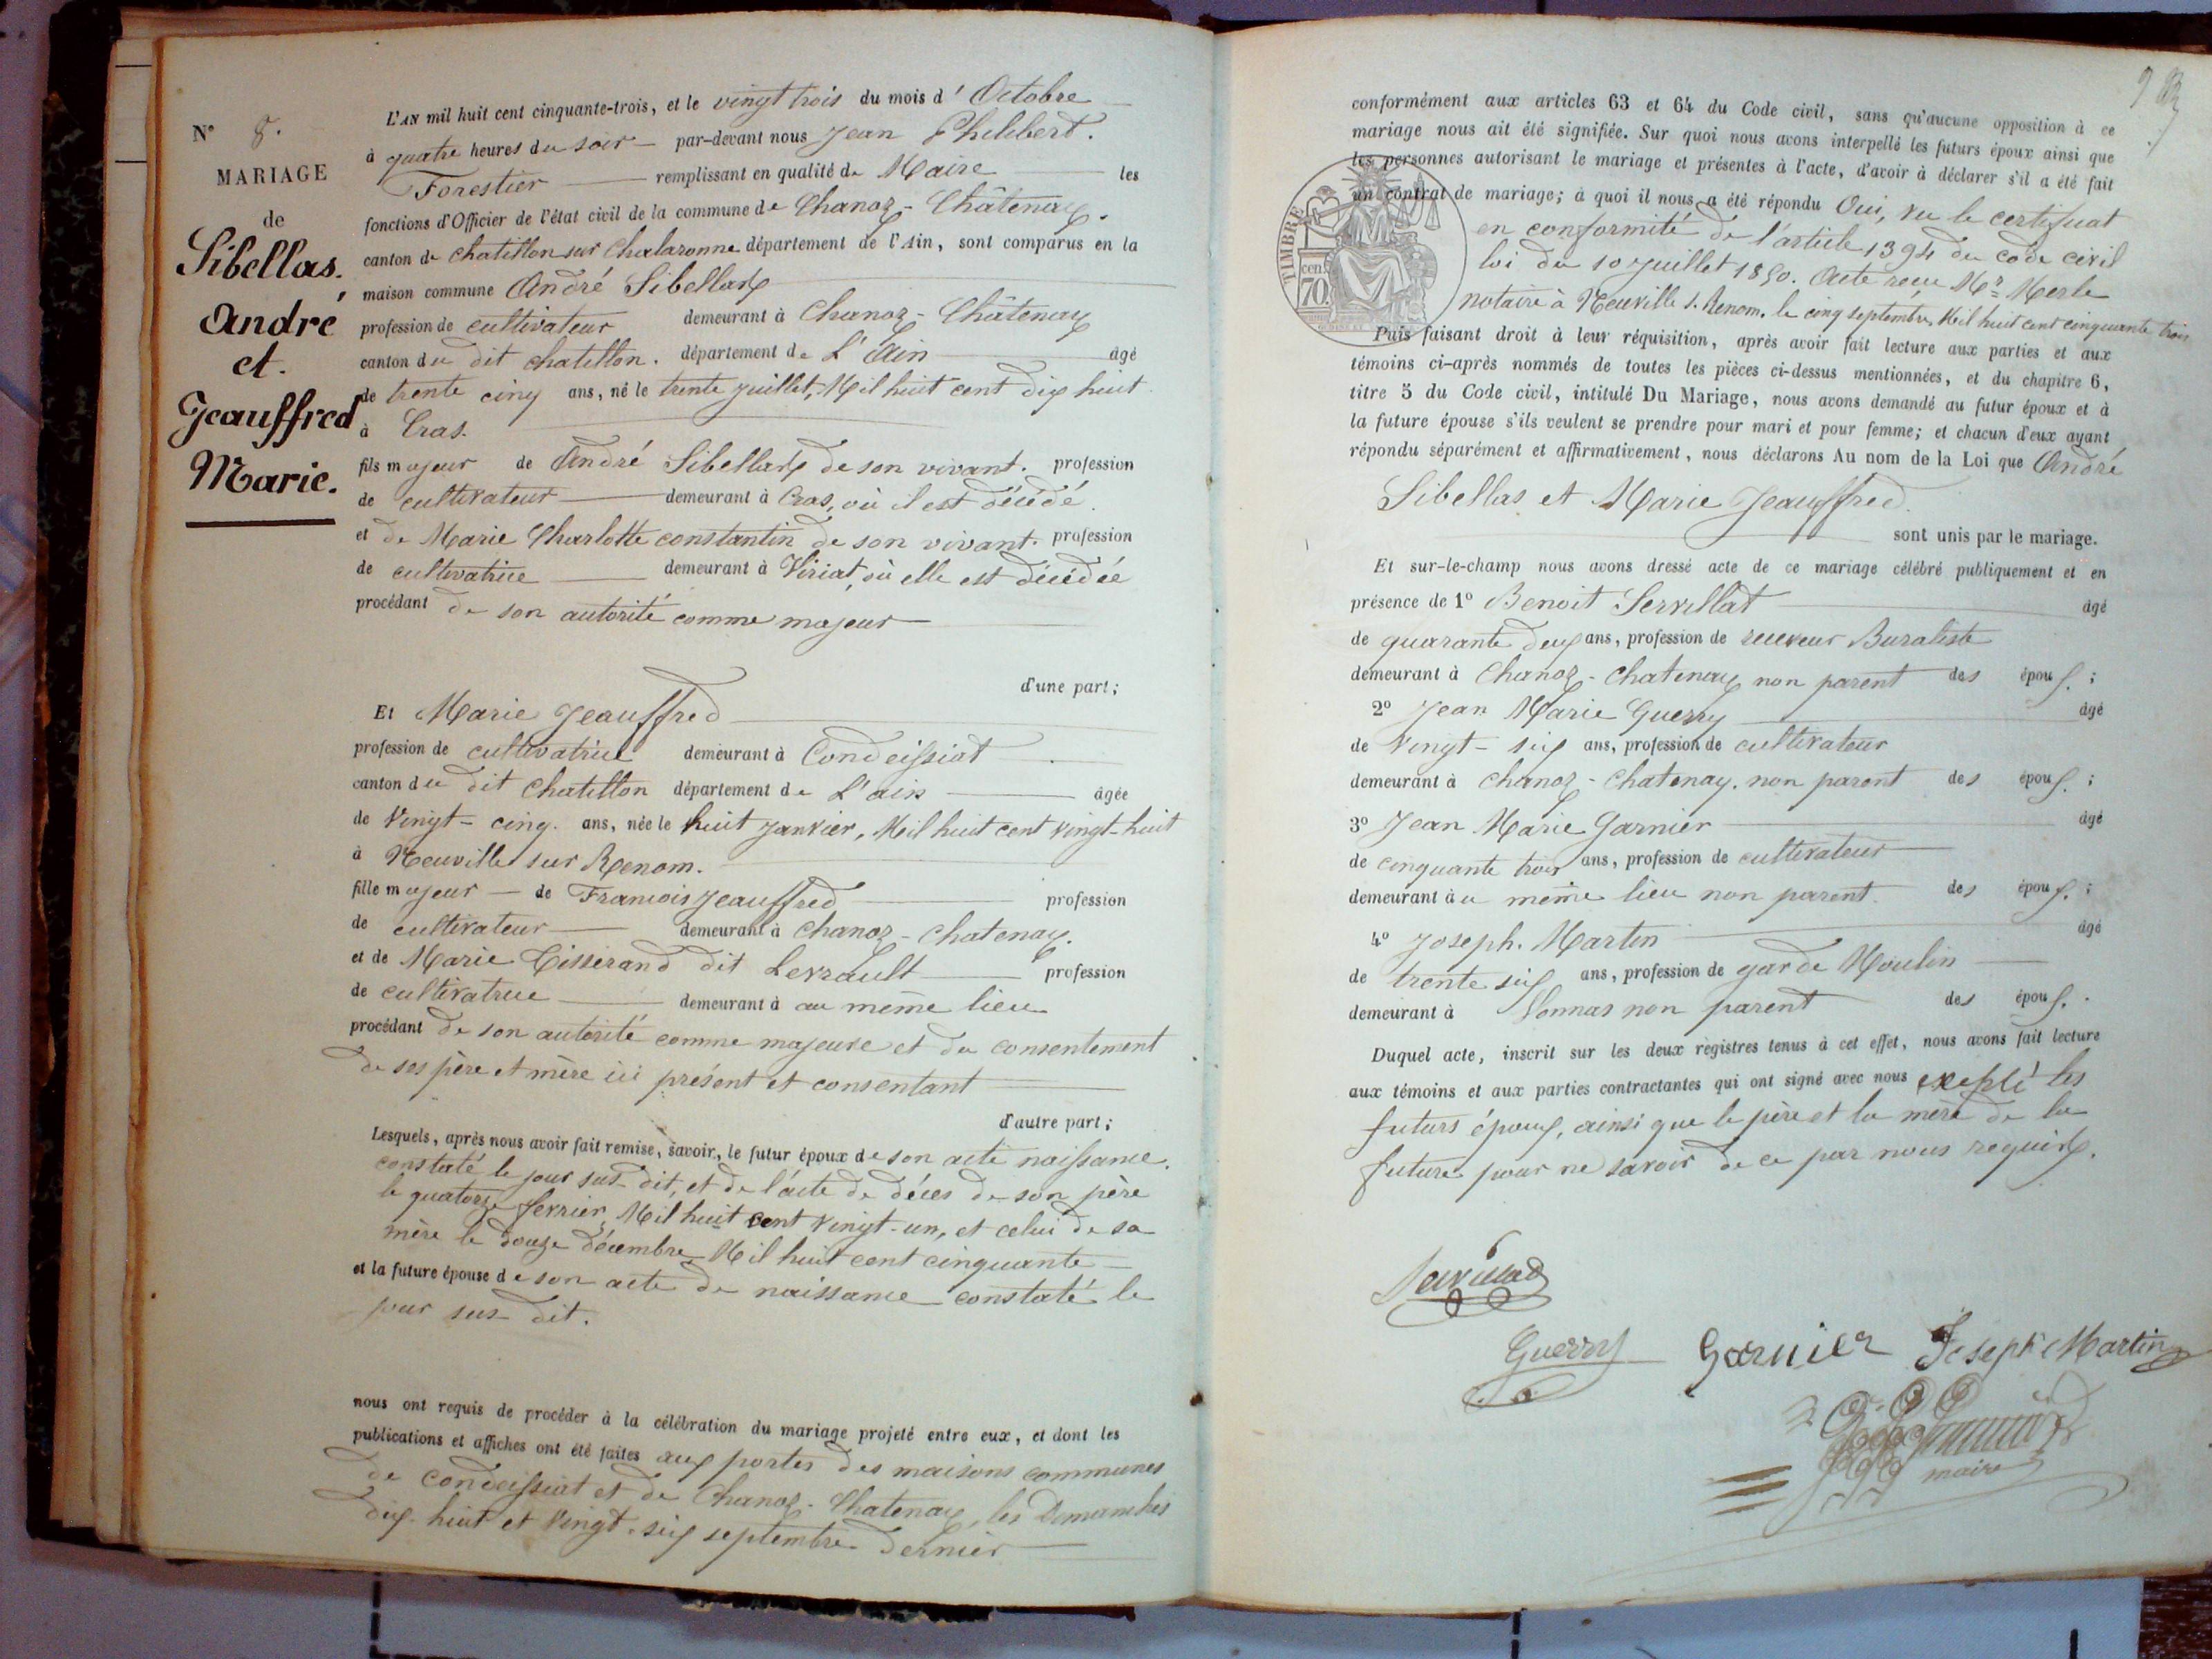 N° 8.
MARIAGE
de
Sibellas,
André
et.
Jeauffred
Marie.
L'AN mil huit cent cinquante-trois, et le vingt trois du mois d' Octobre
à quatre heures du soir par-devant nous Jean Philibert.
Forestier remplissant en qualité de Maire les
fonctions d'Officier de l'état civil de la commune de Chanoz-Châtenay.
canton de chatillon sur Chalaronne département de l'Ain, sont comparus en la
maison commune André Sibellas
profession de cultivateur demeurant à Chanoz-Châtenay
canton du dit chatillon. département de L'Ain âgé
de trente cinq ans, né le trente juillet, Mil huit cent dix huit
à Cras.
fils majeur de André Sibellas de son vivant. profession
de cultivateur demeurant à Cras, où il est décédé.
et de Marie Charlotte constantin de son vivant. profession
de cultivatrice demeurant à Viriat, où elle est décédée
procédant de son autorité comme majeur
d'une part;
Et Marie Jeauffred
profession de cultivatrice demeurant à Condeissiat
canton du dit Chatillon département de L'ain âgée
de Vingt-cinq. ans, née le huit Janvier, Mil huit cent vingt-huit
à Neuville sur Renom.
fille majeur de Francois Jeauffred profession
de cultivateur demeurant à Chanoz-Chatenay.
et de Marie Tisserand dit Levrault profession
de cultivatrice demeurant à au même lieu
procédant de son autorité comme majeure et du consentement
de ses père et mère ici présent et consentant
d'autre part;
Lesquels, après nous avoir fait remise, savoir, le futur époux de son acte naissance.
constaté le jour sus-dit, et de l'acte de décès de son père
le quatorze fevrier, Mil huit cent vingt-un, et celui de sa
mère le douze décembre Mil huit cent cinquante
et la future épouse de son acte de naissance constaté le
jour sus-dit.
nous ont requis de procéder à la célébration du mariage projeté entre eux, et dont les
publications et affiches ont été faites aux portes des maisons communes
de condeissiat et de Chanoz-Chatenay, les Dimanches
dix-huit et vingt-six septembre dernier
conformément aux articles 63 et 64 du Code civil, sans qu'aucune opposition à ce
mariage nous ait été signifiée. Sur quoi nous avons interpellé les futurs époux ainsi que
les personnes autorisant le mariage et présentes à l'acte, d'avoir à déclarer s'il a été fait
un contrat de mariage; à quoi il nous a été répondu Oui, vu le certificat
en conformité de l'article 1394 du code civil
loi du 10 juillet 1850. Acte reçu Mr Merle
notaire à Neuville s. Renom. le cinq septembre, Mil huit cent cinquante trois
TIMBRE
70 cen.
Puis faisant droit à leur réquisition, après avoir fait lecture aux parties et aux
témoins ci-après nommés de toutes les pièces ci-dessus mentionnées, et du chapitre 6,
titre 5 du Code civil, intitulé Du Mariage, nous avons demandé au futur époux et à
la future épouse s'ils veulent se prendre pour mari et pour femme; et chacun d'eux ayant
répondu séparément et affirmativement, nous déclarons Au nom de la Loi que André
Sibellas et Marie Jeauffred.
sont unis par le mariage.
Et sur-le-champ nous avons dressé acte de ce mariage célébré publiquement et en
présence de 1° Benoit Servillat âgé
de quarante deux ans, profession de receveur Buraliste
demeurant à Chanoz-Chatenay non parent des époux;
2° Jean Marie Guerry âgé
de Vingt-six ans, profession de cultivateur
demeurant à Chanoz-Chatenay. non parent des époux;
3° Jean Marie Garnier âgé
de cinquante trois ans, profession de cultivateur
demeurant à u même lieu non parent. des époux;
4° Joseph. Martin âgé
de trente six ans, profession de garde Moulin
demeurant à Vonnas non parent des époux.
Duquel acte, inscrit sur les deux registres tenus à cet effet, nous avons fait lecture
aux témoins et aux parties contractantes qui ont signé avec nous excepté les
futurs époux, ainsi que le père et la mère de la
future pour ne savoir de ce par nous requis.
Servillat
Guerry Garnier Joseph Martin
maire